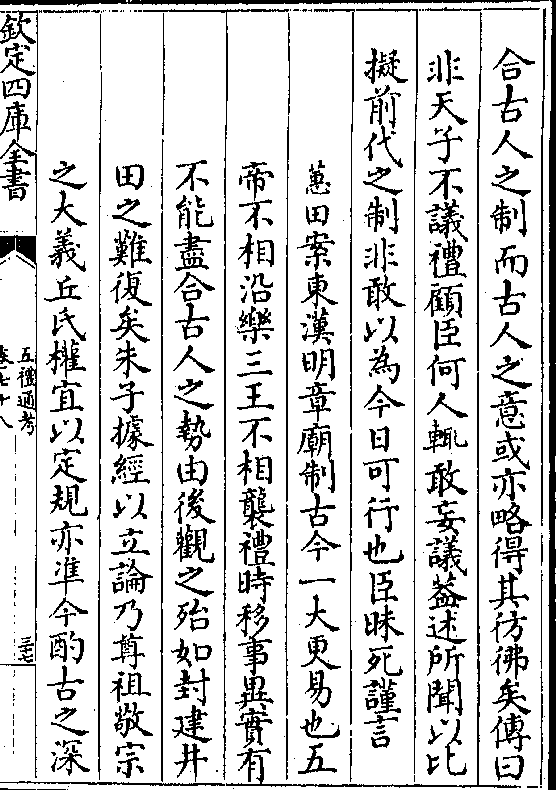 合古人之制而古人之意或亦略得其彷彿矣傳曰
非天子不議禮顧臣何人輒敢妄議蓋述所聞以比
擬前代之制非敢以為今日可行也臣昧死謹言
蕙田案東漢明章廟制古今一大更易也五
帝不相沿樂三王不相襲禮時移事異實有
不能盡合古人之勢由後觀之殆如封建井
田之難復矣朱子據經以立論乃尊祖敬宗
之大義丘氏權宜以定規亦準今酌古之深
欽定四庫全書
五禮通考
卷七十八
三十七